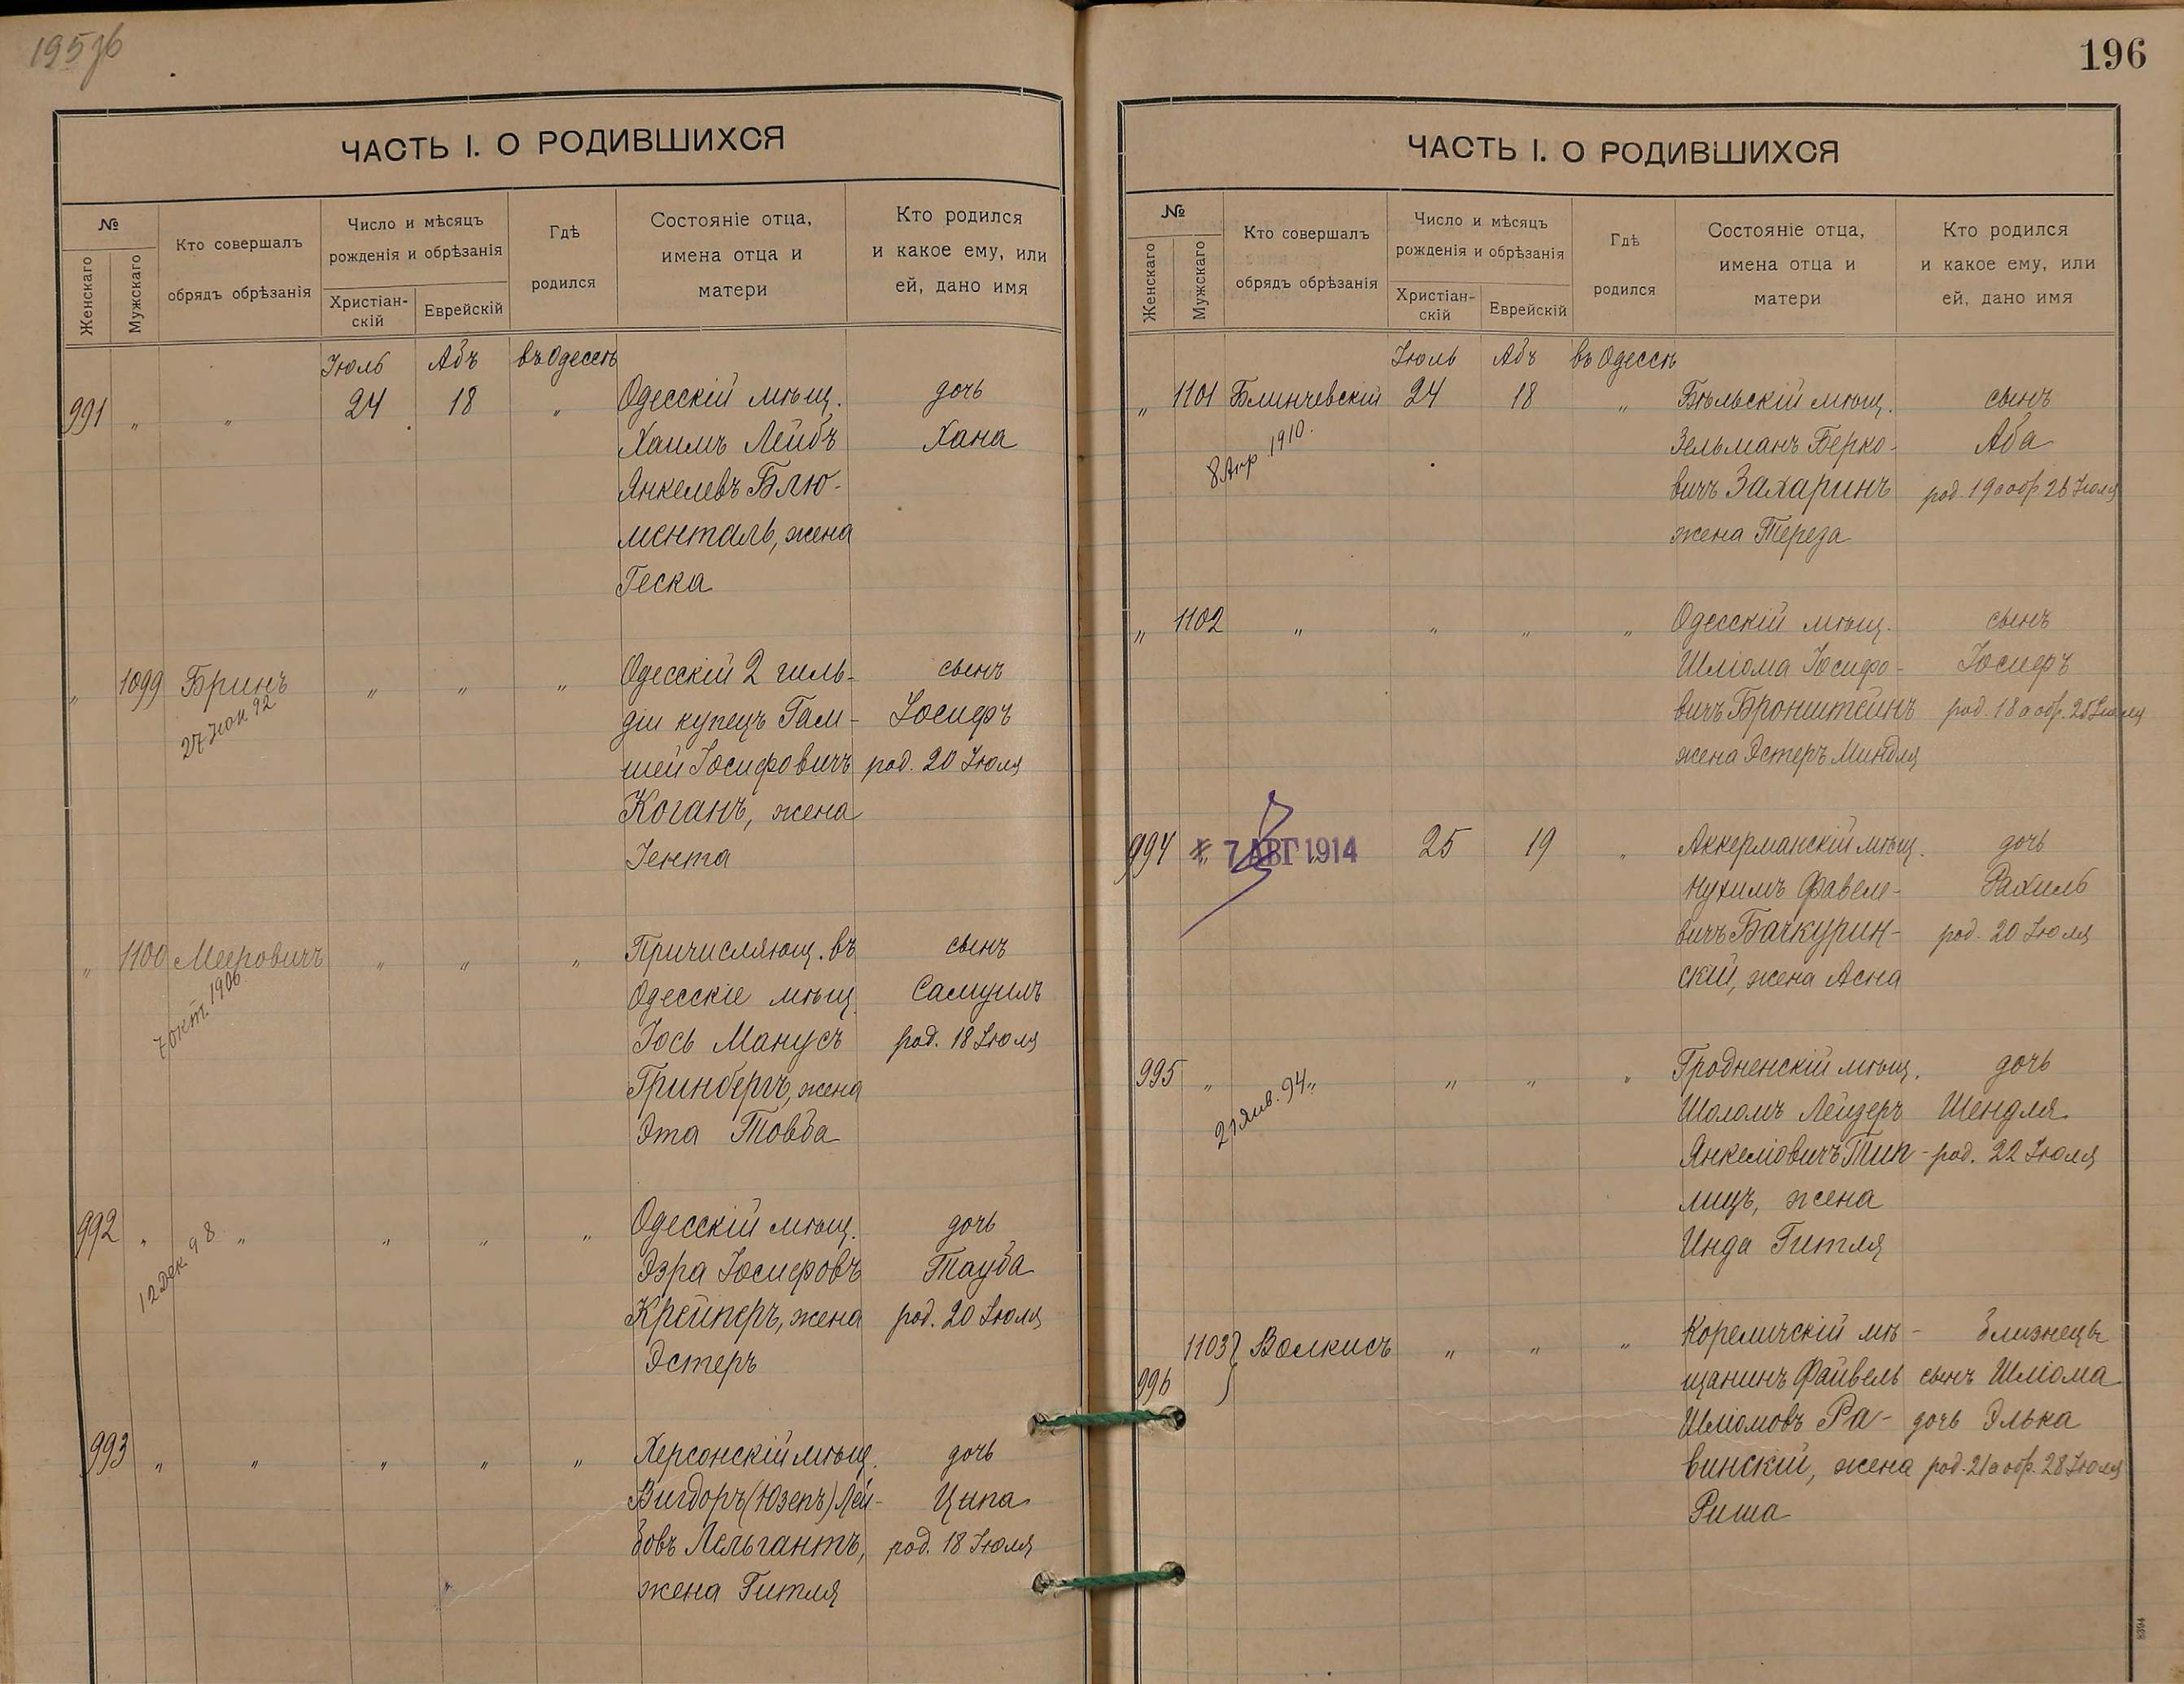 195об
ЧАСТЬ I. О РОДИВШИХСЯ
№
Женскаго
Мужскаго
Кто совершалъ
обрядъ обрѣзанія
Число и мѣсяцъ
рожденія и обрѣзанія
Христіан-
скій
Еврейскій
Гдѣ
родился
Состояніе отца,
имена отца и
матери
Кто родился
и какое ему, или
ей, дано имя
Іюль Абъ въ Одессѣ
991 „ „ 24 18 „ Одесскій мѣщ. дочь
Хаимъ Лейбъ Хана
Янкелевъ Блю-
менталь, жена
Геска
„ 1099 Бринъ „ „ „ Одесскій 2 гиль- сынъ
27 Іюн 92
діи купецъ Гам- Іосифъ
шей Іосифовичъ род. 20 Іюля
Коганъ, жена
Іента
„ 1100 Мееровичъ „ „ „ Причисляющ. въ сынъ
7 окт. 1906
Одесскіе мѣщ. Самуилъ
Іось Манусъ род. 18 Іюля
Гринбергъ, жена
Эта Товба
992 „ „ „ „ „ Одесскій мѣщ. дочь
12 Дек 98
Эзра Іосифовъ Тауба
Крейперъ, жена род. 20 Іюля
Эстеръ
993 „ „ „ „ „ Херсонскій мѣщ. дочь
Вигдоръ (Юзепъ) Лей- Ципа
бовъ Лельгантъ, род. 18 Іюля
жена Гитля
196
ЧАСТЬ I. О РОДИВШИХСЯ
№
Женскаго
Мужскаго
Кто совершалъ
обрядъ обрѣзанія
Число и мѣсяцъ
рожденія и обрѣзанія
Христіан-
скій
Еврейскій
Гдѣ
родился
Состояніе отца,
имена отца и
матери
Кто родился
и какое ему, или
ей, дано имя
Іюль Абъ въ Одессѣ
„ 1101 Блинчевскій 24 18 „ Бѣльскій мѣщ. сынъ
8 Апр 1910.
Зельманъ Берко- Аба
вичъ Захаринъ род. 19 а обр 26 Іюля
жена Тереза
„ 1102 „ „ „ „ Одесскій мѣщ. сынъ
Шліома Іосифо- Іосифъ
вичъ Бронштейнъ род. 18 а обр. 25 Іюля
жена Эстеръ Миндля
994 „ 7 АВГ 1914 25 19 „ Аккерманскій мѣщ. дочь
Нухимъ Фавеле- Рахиль
вичъ Бачкурин- род. 20 Іюля
скій, жена Асна
995 „ „ „ „ „ Гродненскій мѣщ. дочь
21 Янв. 94
Шоломъ Лейзеръ Шендля
Янкеліовичъ Тип- род. 22 Іюля
лицъ, жена
Инда Гитля
1103 Волкисъ „ „ „ Кореличскій мѣ- близнецы
996
щанинъ Файвель сынъ Шліома
Шліомовъ Ра- дочь Элька
винскій, жена род. 21 а обр. 28 Іюля
Риша